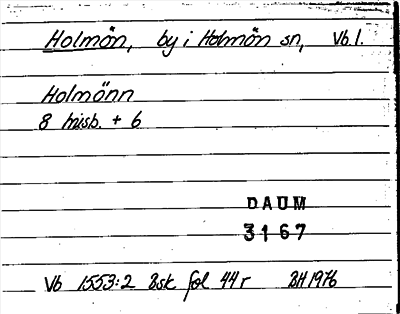 Holmön, by i Holmön sn, Vb l.
Holmönn
8 husb. + 6
DAUM
3167
Vb 1553:2 Bsk fol 44 r BH 1976